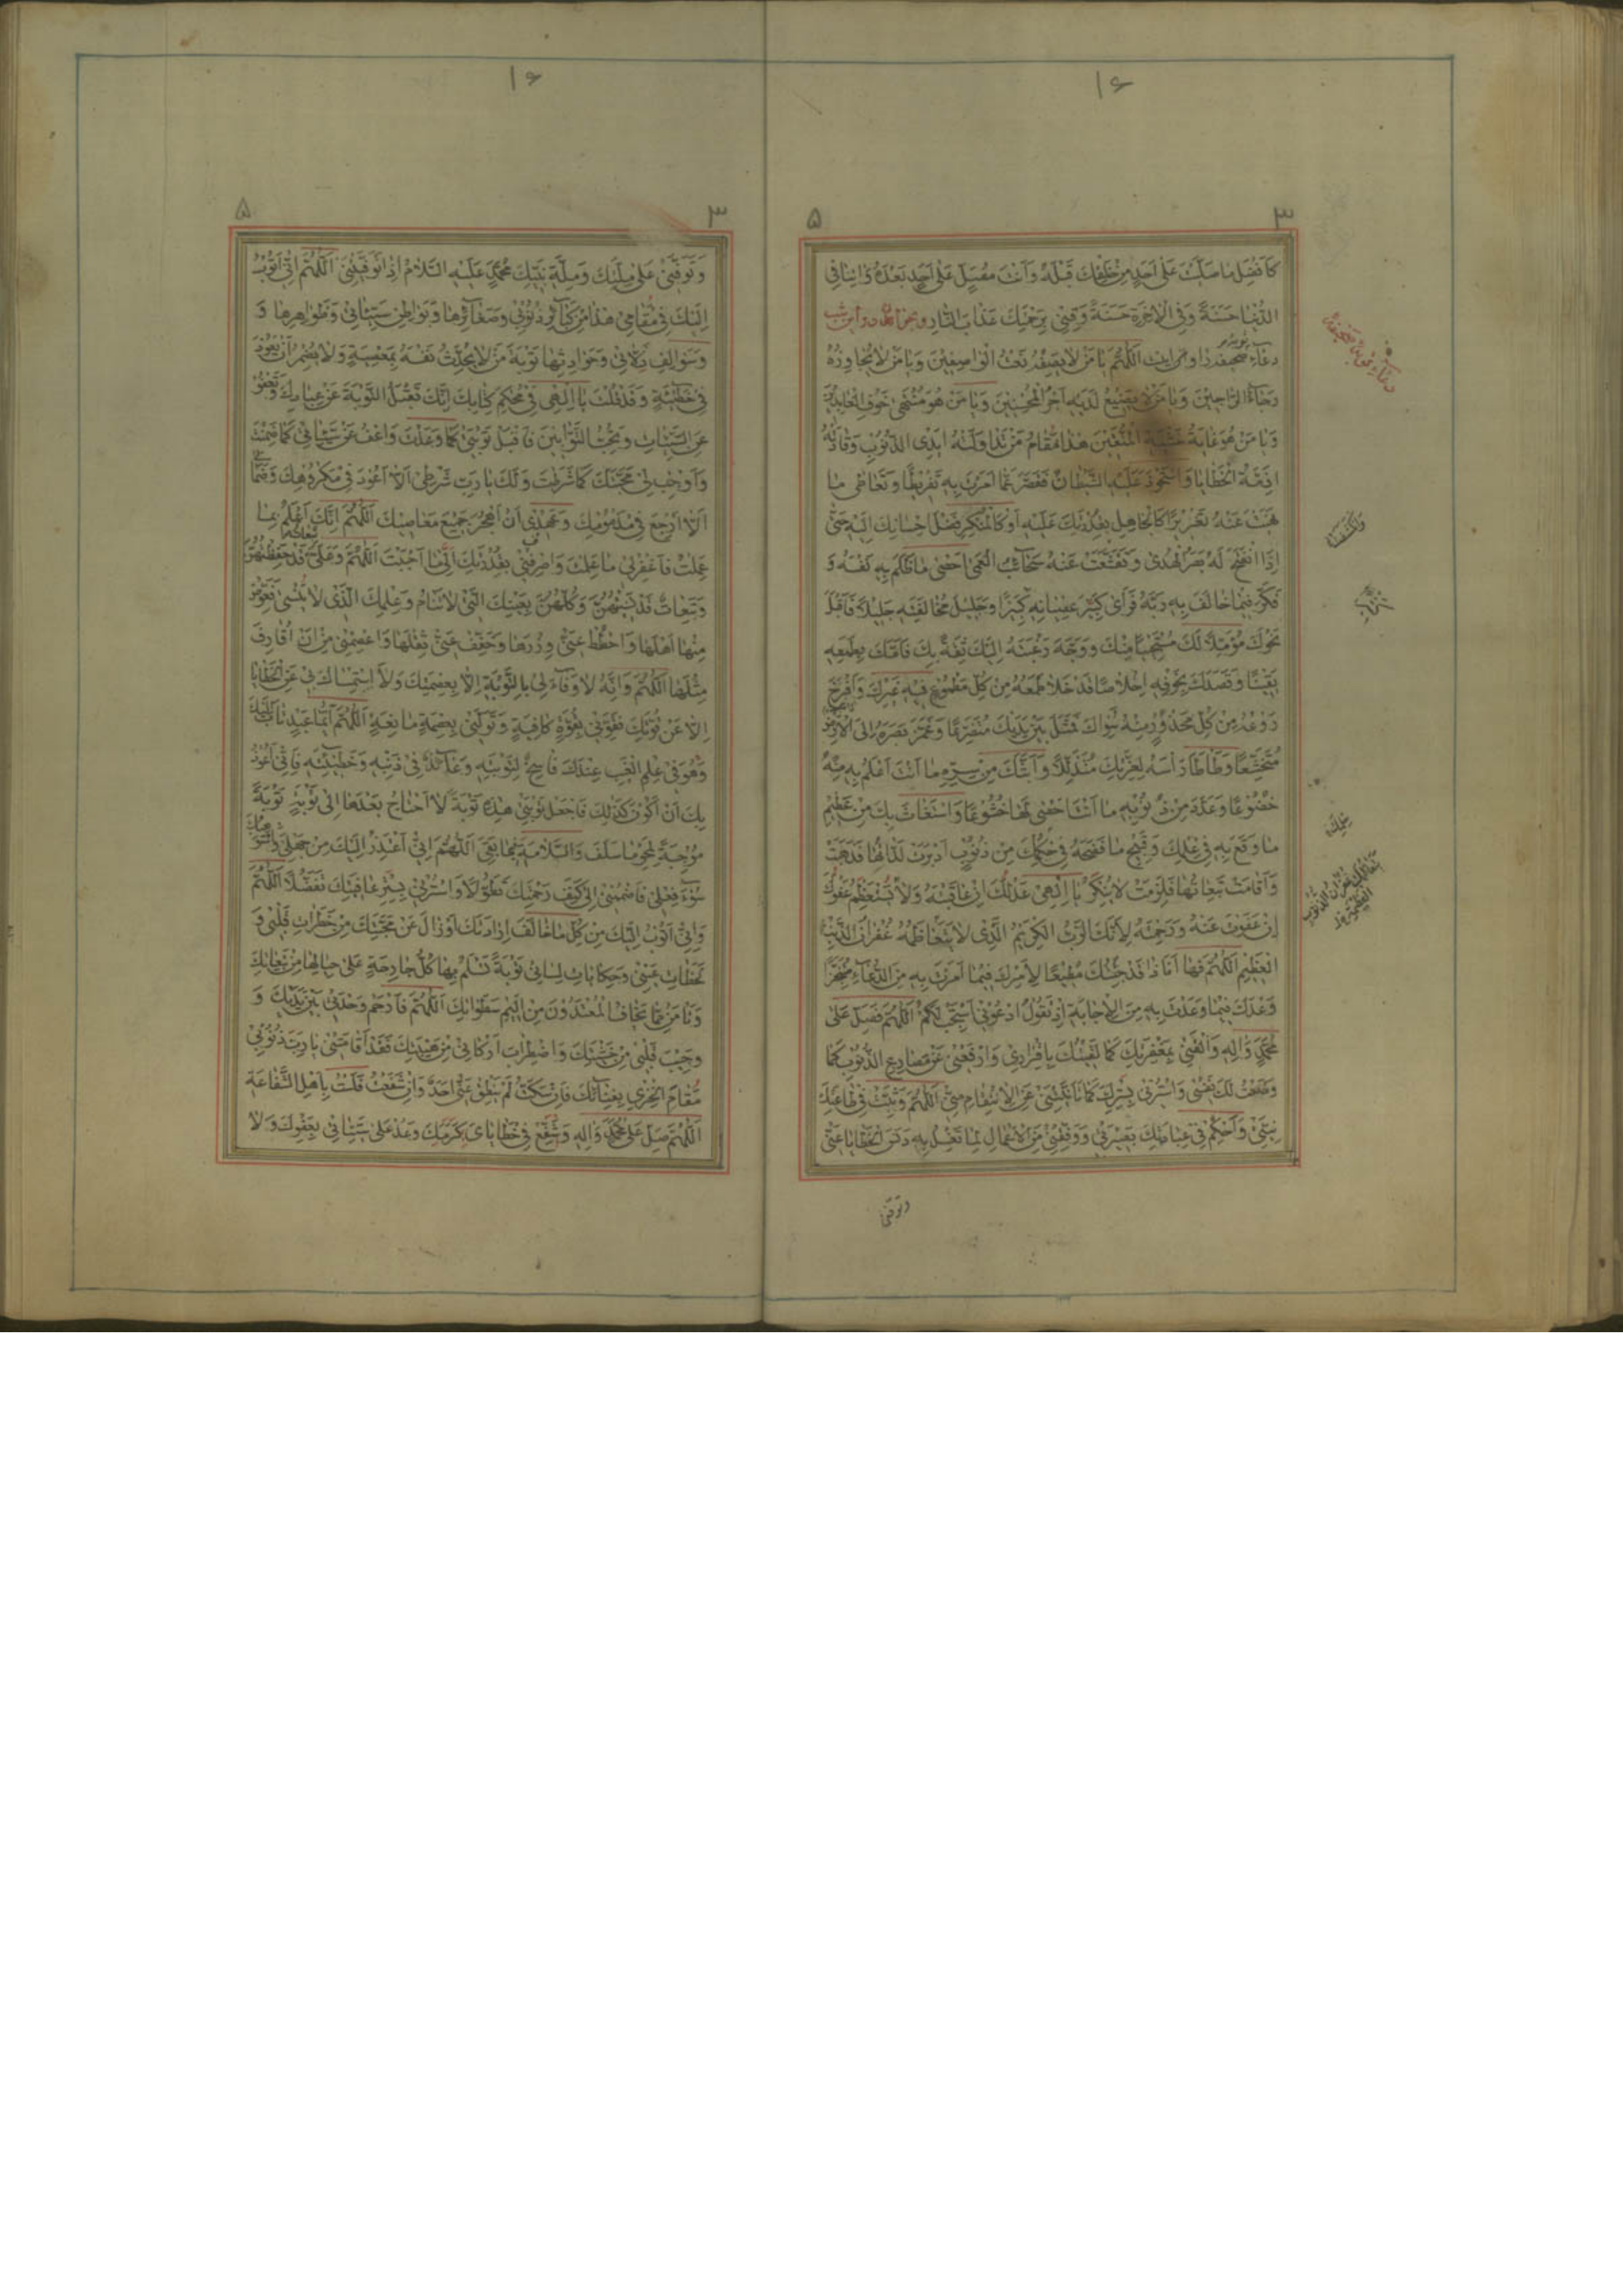 ۱۶
۳ ۵
كَاَفْضَلِ مَا صَلَّيْتَ عَلٰى اَحَدٍ مِنْ خَلْقِكَ قَبْلَهُ وَاَنْتَ مُصَلٍّ عَلٰى اَحَدٍ بَعْدَهُ وَاٰتِنَا فِي
الدُّنْيَا حَسَنَةً وَفِي الْاٰخِرَةِ حَسَنَةً وَقِنِي بِرَحْمَتِكَ عَذَابَ النَّارِ و بخواند در اين شب
دعاء صحيفه را و هى اينست اَللّٰهُمَّ يَا مَنْ لَا يَصِفُهُ نَعْتُ الْوَاصِفِيْنَ وَيَا مَنْ لَا يُجَاوِزُهُ
رَجَاءُ الرَّاجِيْنَ وَيَا مَنْ لَا يَضِيْعُ لَدَيْهِ اَجْرُ الْمُحْسِنِيْنَ وَيَا مَنْ هُوَ مُنْتَهٰى خَوْفِ الْعَابِدِيْنَ
وَيَا مَنْ هُوَ غَايَةُ خَشْيَةِ الْمُتَّقِيْنَ هٰذَا مَقَامُ مَنْ تَدَاوَلَتْهُ اَيْدِى الذُّنُوْبِ وَقَادَتْهُ
اَزِمَّةُ الْخَطَايَا وَاسْتَحْوَذَ عَلَيْهِ الشَّيْطَانُ فَقَصَّرَ عَمَّا اَمَرْتَ بِهِ تَفْرِيْطًا وَتَعَاطٰى مَا
نَهَيْتَ عَنْهُ تَغْرِيْرًا كَالْجَاهِلِ بِقُدْرَتِكَ عَلَيْهِ اَوْ كَالْمُنْكِرِ فَضْلَ اِحْسَانِكَ اِلَيْهِ حَتّٰى
اِذَا انْفَتَحَ لَهُ بَصَرُ الْهُدٰى وَتَقَشَّعَتْ عَنْهُ سَحَائِبُ الْعَمٰى اَحْصٰى مَا ظَلَمَ بِهِ نَفْسَهُ وَ
فَكَّرَ فِيْمَا خَالَفَ بِهِ رَبَّهُ فَرَاٰى كَبِيْرَ عِصْيَانِهِ كَبِيْرًا وَجَلِيْلَ مُخَالَفَتِهِ جَلِيْلًا فَاَقْبَلَ
نَحْوَكَ مُؤَمِّلًا لَكَ مُسْتَحْيِيًا مِنْكَ وَوَجَّهَ رَغْبَتَهُ اِلَيْكَ ثِقَةً بِكَ فَاَمَّكَ بِطَمَعِهِ
يَقِيْنًا وَقَصَدَكَ بِخَوْفِهِ اِخْلَاصًا قَدْ خَلَا طَمَعُهُ مِنْ كُلِّ مَطْمُوْعٍ فِيْهِ غَيْرِكَ وَاَفْرَخَ
رَوْعُهُ مِنْ كُلِّ مَحْذُوْرٍ مِنْهُ سِوَاكَ فَمَثَلَ بَيْنَ يَدَيْكَ مُتَضَرِّعًا وَغَمَّضَ بَصَرَهُ اِلَى الْاَرْضِ
مُتَخَشِّعًا وَطَاْطَاَ رَاْسَهُ لِعِزَّتِكَ مُتَذَلِّلًا وَاَبَثَّكَ مِنْ سِرِّهِ مَا اَنْتَ اَعْلَمُ بِهِ مِنْهُ
خُضُوْعًا وَعَدَّدَ مِنْ ذُنُوْبِهِ مَا اَنْتَ اَحْصٰى لَهَا خُشُوْعًا وَاسْتَغَاثَ بِكَ مِنْ عَظِيْمِ
مَا وَقَعَ بِهِ فِي عِلْمِكَ وَقَبِيْحِ مَا فَضَحَهُ فِي حُكْمِكَ مِنْ ذُنُوْبٍ اَدْبَرَتْ لَذَّاتُهَا فَذَهَبَتْ
وَاَقَامَتْ تَبِعَاتُهَا فَلَزِمَتْ لَا يُنْكِرُ يَا اِلٰهِيْ عَدْلَكَ اِنْ عَاقَبْتَهُ وَلَا يَسْتَعْظِمُ عَفْوَكَ
اِنْ عَفَوْتَ عَنْهُ وَرَحِمْتَهُ لِاَنَّكَ الرَّبُّ الْكَرِيْمُ الَّذِى لَا يَتَعَاظَمُهُ غُفْرَانُ الذَّنْبِ
الْعَظِيْمِ اَللّٰهُمَّ فَهَا اَنَا ذَا قَدْ جِئْتُكَ مُطِيْعًا لِاَمْرِكَ فِيْمَا اَمَرْتَ بِهِ مِنَ الدُّعَاءِ مُتَنَجِّزًا
وَعْدَكَ فِيْمَا وَعَدْتَ بِهِ مِنَ الْاِجَابَةِ اِذْ تَقُوْلُ ادْعُوْنِيْ اَسْتَجِبْ لَكُمْ اَللّٰهُمَّ فَصَلِّ عَلٰى
مُحَمَّدٍ وَاٰلِهِ وَالْقَنِيْ بِمَغْفِرَتِكَ كَمَا لَقِيْتُكَ بِاِقْرَارِى وَارْفَعْنِيْ عَنْ مَصَارِعِ الذُّنُوْبِ كَمَا
وَضَعْتُ لَكَ نَفْسِى وَاسْتُرْنِى بِسِتْرِكَ كَمَا تَاَنَّيْتَنِيْ عَنِ الْاِنْتِقَامِ مِنِّيْ اَللّٰهُمَّ وَثَبِّتْ فِي طَاعَتِكَ
نِيَّتِيْ وَاَحْكِمْ فِي عِبَادَتِكَ بَصِيْرَتِيْ وَوَفِّقْنِيْ مِنَ الْاَعْمَالِ لِمَا تَغْسِلُ بِهِ دَنَسَ الْخَطَايَا عَنِّيْ
وتوفنى
۱۶
۳ ۵
وَتَوَفَّنِيْ عَلٰى مِلَّتِكَ وَمِلَّةِ نَبِيِّكَ مُحَمَّدٍ عَلَيْهِ السَّلَامُ اِذَا تَوَفَّيْتَنِيْ اَللّٰهُمَّ اِنِّيْ اَتُوْبُ
اِلَيْكَ فِي مَقَامِى هٰذَا مِنْ كَبَائِرِ ذُنُوْبِيْ وَصَغَائِرِهَا وَبَوَاطِنِ سَيِّئَاتِيْ وَظَوَاهِرِهَا وَ
وَسَوَالِفِ زَلَّاتِيْ وَحَوَادِثِهَا تَوْبَةَ مَنْ لَا يُحَدِّثُ نَفْسَهُ بِمَعْصِيَةٍ وَلَا يُضْمِرُ اَنْ يَعُوْدَ
فِي خَطِيْئَةٍ وَقَدْ قُلْتَ يَا اِلٰهِى فِي مُحْكَمِ كِتَابِكَ اِنَّكَ تَقْبَلُ التَّوْبَةَ عَنْ عِبَادِكَ وَتَعْفُوْ
عَنِ السَّيِّئَاتِ وَتُحِبُّ التَّوَّابِيْنَ فَاقْبَلْ تَوْبَتِيْ كَمَا وَعَدْتَ وَاعْفُ عَنْ سَيِّئَاتِيْ كَمَا ضَمِنْتَ
وَاَوْجِبْ لِيْ مَحَبَّتَكَ كَمَا شَرَطْتَ وَلَكَ يَا رَبِّ شَرْطِىْ اَلَّا اَعُوْدَ فِيْ مَكْرُوْهِكَ وَضَمَانِيْ
اَلَّا اَرْجِعَ فِي مَذْمُوْمِكَ وَعَهْدِيْ اَنْ اَهْجُرَ جَمِيْعَ مَعَاصِيْكَ اَللّٰهُمَّ اِنَّكَ اَعْلَمُ بِمَا
عَمِلْتُ فَاغْفِرْ لِيْ مَا عَلِمْتَ وَاصْرِفْنِيْ بِقُدْرَتِكَ اِلٰى مَا اَحْبَبْتَ اَللّٰهُمَّ وَعَلَيَّ تَبِعَاتٌ قَدْ حَفِظْتُهُنَّ
وَتَبِعَاتٌ قَدْ نَسِيْتُهُنَّ وَكُلُّهُنَّ بِعَيْنِكَ الَّتِيْ لَا تَنَامُ وَعِلْمِكَ الَّذِى لَا يَنْسٰى فَعَوِّضْ
مِنْهَا اَهْلَهَا وَاحْطُطْ عَنِّيْ وِزْرَهَا وَخَفِّفْ عَنِّيْ ثِقْلَهَا وَاعْصِمْنِيْ مِنْ اَنْ اُقَارِفَ
مِثْلَهَا اَللّٰهُمَّ وَاِنَّهُ لَا وَفَاءَ لِيْ بِالتَّوْبَةِ اِلَّا بِعِصْمَتِكَ وَلَا اسْتِمْسَاكَ بِيْ عَنِ الْخَطَايَا
اِلَّا عَنْ قُوَّتِكَ فَقَوِّنِيْ بِقُوَّةٍ كَافِيَةٍ وَتَوَلَّنِيْ بِعِصْمَةٍ مَانِعَةٍ اَللّٰهُمَّ اَيُّمَا عَبْدٍ تَابَ اِلَيْكَ
وَهُوَ فِي عِلْمِ الْغَيْبِ عِنْدَكَ فَاسِخٌ لِتَوْبَتِهِ وَعَائِدٌ فِي ذَنْبِهِ وَخَطِيْئَتِهِ فَاِنِّيْ اَعُوْذُ
بِكَ اَنْ اَكُوْنَ كَذٰلِكَ فَاجْعَلْ تَوْبَتِيْ هٰذِهِ تَوْبَةً لَا اَحْتَاجُ بَعْدَهَا اِلٰى تَوْبَةٍ تَوْبَةً
مُوْجِبَةً لِمَحْوِ مَا سَلَفَ وَالسَّلَامَةِ فِيْمَا بَقِيَ اَللّٰهُمَّ اِنِّيْ اَعْتَذِرُ اِلَيْكَ مِنْ جَهْلِيْ وَاَسْتَوْهِبُكَ
سُوْءَ فِعْلِيْ فَاضْمُمْنِيْ اِلٰى كَنَفِ رَحْمَتِكَ تَطَوُّلًا وَاسْتُرْنِيْ بِسِتْرِ عَافِيَتِكَ تَفَضُّلًا اَللّٰهُمَّ
وَاِنِّيْ اَتُوْبُ اِلَيْكَ مِنْ كُلِّ مَا خَالَفَ اِرَادَتَكَ اَوْ زَالَ عَنْ مَحَبَّتِكَ مِنْ خَطَرَاتِ قَلْبِيْ وَ
لَحَظَاتِ عَيْنِيْ وَحِكَايَاتِ لِسَانِيْ تَوْبَةً تَسْلَمُ بِهَا كُلُّ جَارِحَةٍ عَلٰى حِيَالِهَا مِنْ تَبِعَاتِكَ
وَتَاْمَنُ مِمَّا يَخَافُ الْمُعْتَدُوْنَ مِنْ اَلِيْمِ سَطَوَاتِكَ اَللّٰهُمَّ فَارْحَمْ وَحْدَتِيْ بَيْنَ يَدَيْكَ وَ
وَجِيْبَ قَلْبِيْ مِنْ خَشْيَتِكَ وَاضْطِرَابَ اَرْكَانِيْ مِنْ هَيْبَتِكَ فَقَدْ اَقَامَتْنِيْ يَا رَبِّ ذُنُوْبِيْ
مَقَامَ الْخِزْيِ بِفِنَائِكَ فَاِنْ سَكَتُّ لَمْ يَنْطِقْ عَنِّيْ اَحَدٌ وَاِنْ شَفَعْتُ فَلَسْتُ بِاَهْلِ الشَّفَاعَةِ
اَللّٰهُمَّ صَلِّ عَلٰى مُحَمَّدٍ وَاٰلِهِ وَشَفِّعْ فِيْ خَطَايَاىَ كَرَمَكَ وَعُدْ عَلٰى سَيِّئَاتِيْ بِعَفْوِكَ وَلَا